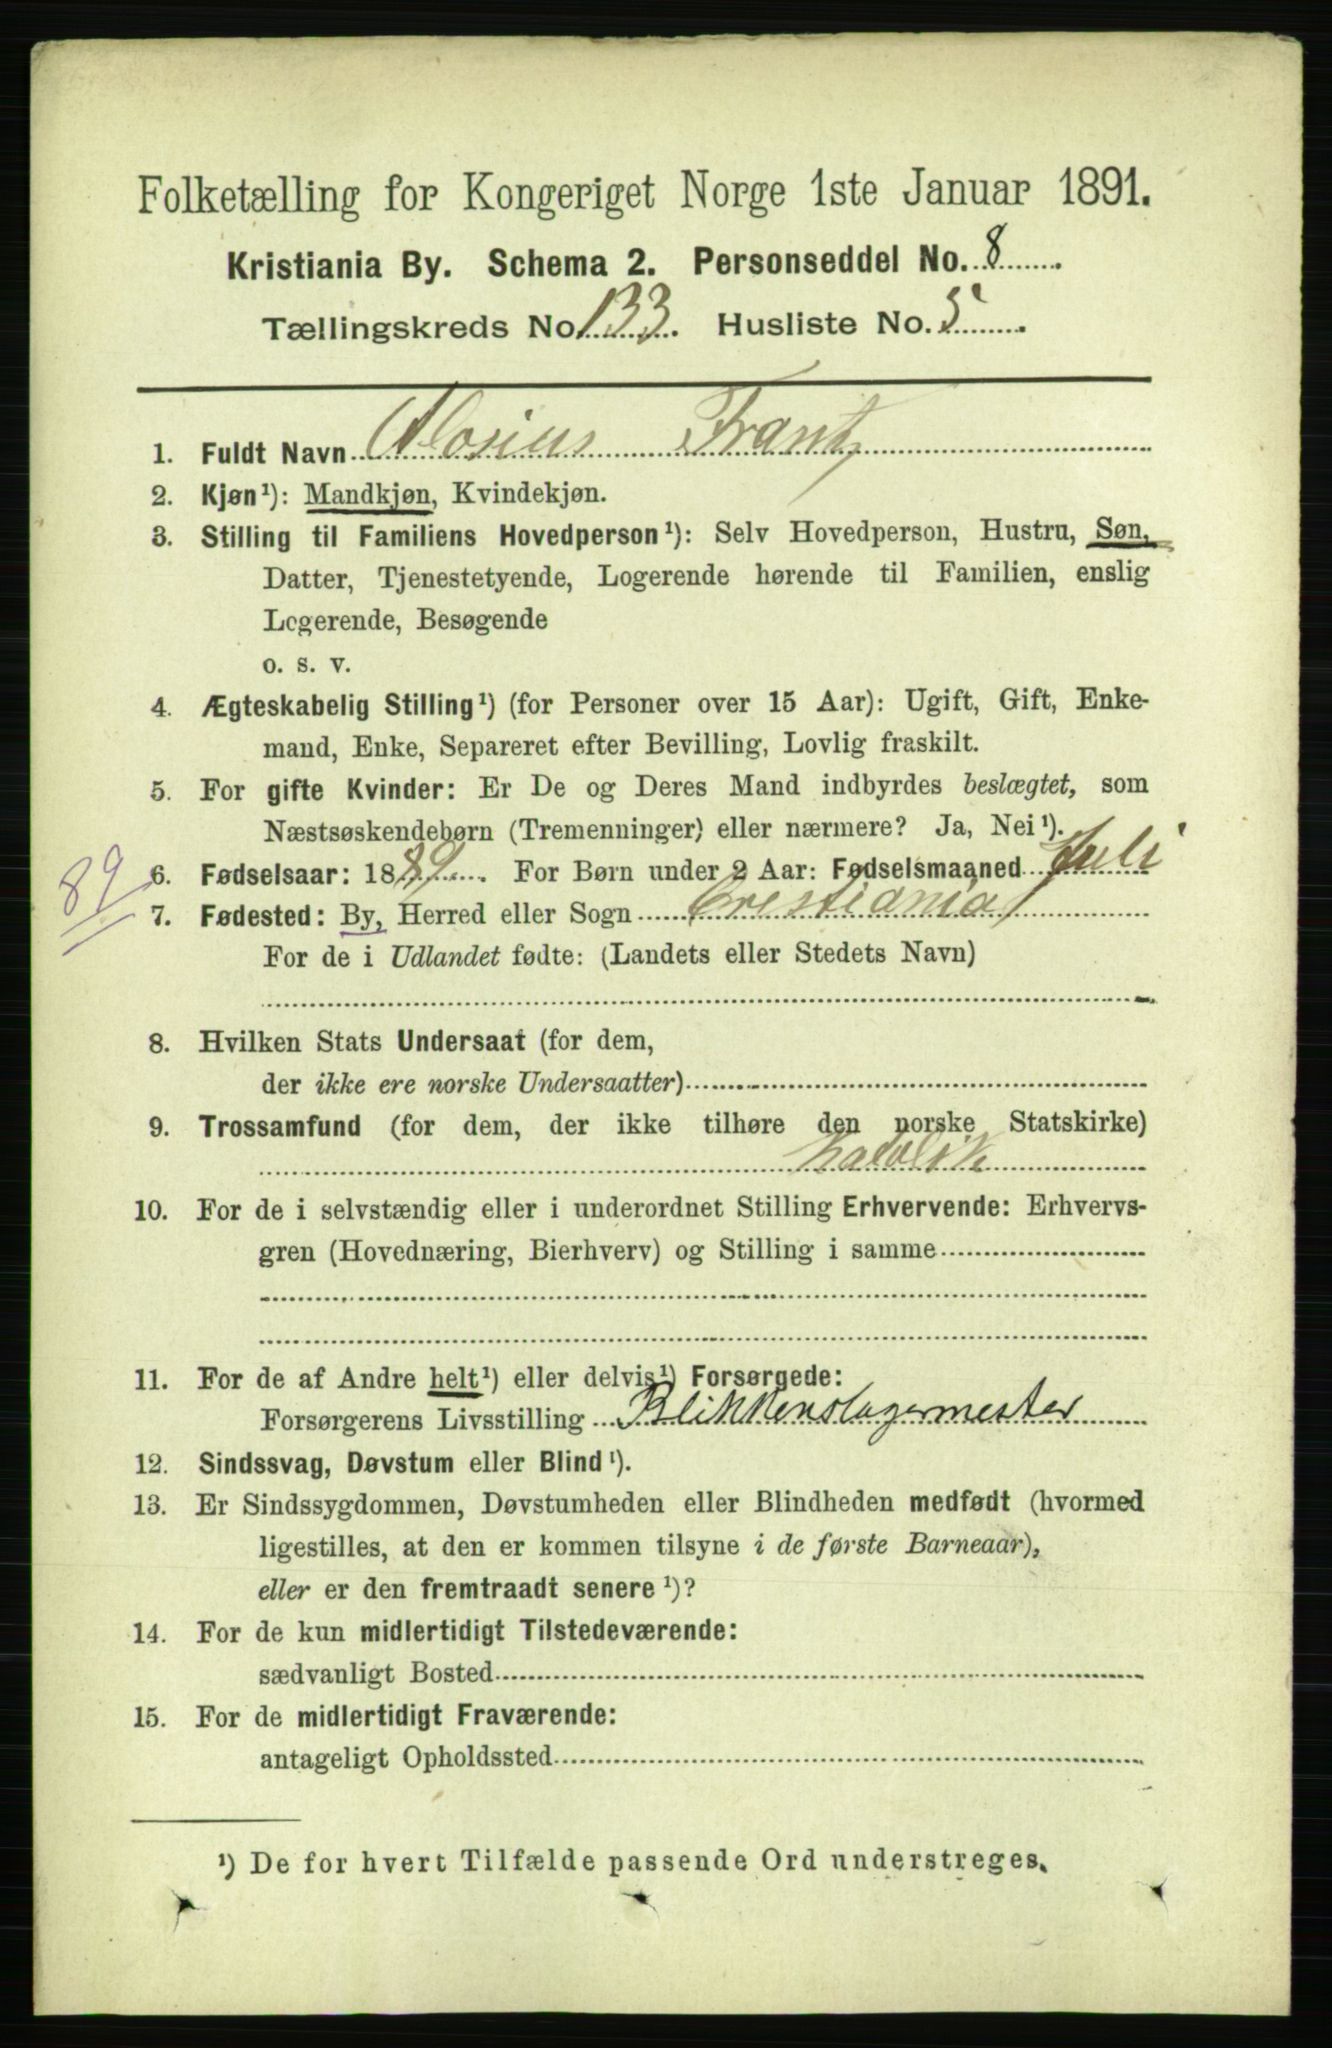 Folketælling for Kongeriget Norge 1ste Januar 1891.
Kristiania By. Schema 2. Personseddel No. 8
Tællingskreds No. 133. Husliste No. 5
1. Fuldt Navn Alosius Frantz
2. Kjøn¹): Mandkjøn, Kvindekjøn.
3. Stilling til Familiens Hovedperson¹): Selv Hovedperson, Hustru, Søn,
Datter, Tjenestetyende, Logerende hørende til Familien, enslig
Logerende, Besøgende
o. s. v.
4. Ægteskabelig Stilling¹) (for Personer over 15 Aar): Ugift, Gift, Enke-
mand, Enke, Separeret efter Bevilling, Lovlig fraskilt.
5. For gifte Kvinder: Er De og Deres Mand indbyrdes beslægtet, som
Næstsøskendebørn (Tremenninger) eller nærmere? Ja, Nei¹).
89
6. Fødselsaar: 1889. For Børn under 2 Aar: Fødselsmaaned Juli
7. Fødested: By, Herred eller Sogn Crestiania
For de i Udlandet fødte: (Landets eller Stedets Navn)
8. Hvilken Stats Undersaat (for dem,
der ikke ere norske Undersaatter)
9. Trossamfund (for dem, der ikke tilhøre den norske Statskirke)
Katolik
10. For de i selvstændig eller i underordnet Stilling Erhvervende: Erhvervs-
gren (Hovednæring, Bierhverv) og Stilling i samme
11. For de af Andre helt¹) eller delvis¹) Forsørgede:
Forsørgerens Livsstilling Blikkenslagermester
12. Sindssvag, Døvstum eller Blind¹).
13. Er Sindssygdommen, Døvstumheden eller Blindheden medfødt (hvormed
ligestilles, at den er kommen tilsyne i de første Barneaar),
eller er den fremtraadt senere¹)?
14. For de kun midlertidigt Tilstedeværende:
sædvanligt Bosted
15. For de midlertidigt Fraværende:
antageligt Opholdssted
¹) De for hvert Tilfælde passende Ord understreges.